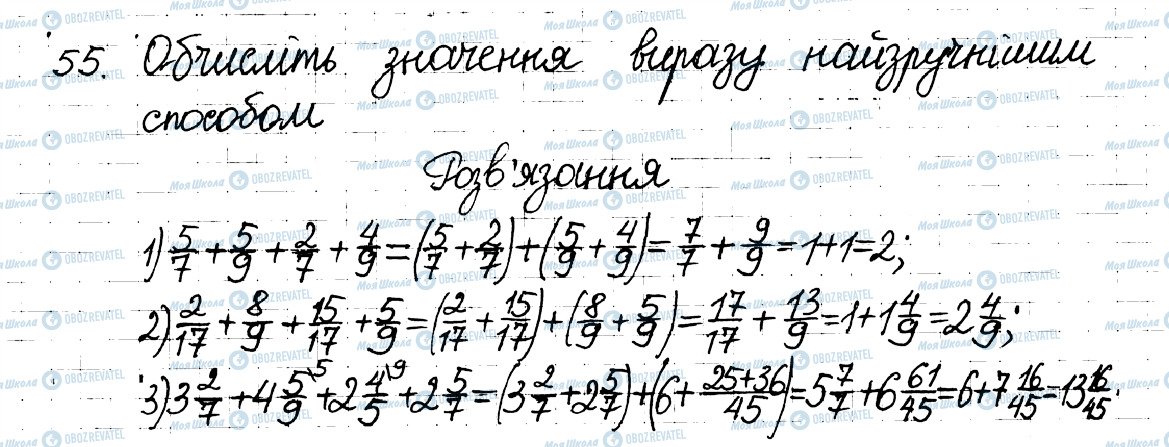 55. Обчисліть значення виразу найзручнішим
способом
Розв'язання
1) 5/7 + 5/9 + 2/7 + 4/9 = (5/7 + 2/7) + (5/9 + 4/9) = 7/7 + 9/9 = 1+1=2;
2) 2/17 + 8/9 + 15/17 + 5/9 = (2/17 + 15/17) + (8/9 + 5/9) = 17/17 + 13/9 = 1+1 4/9 = 2 4/9;
3) 3 2/7 + 4 5/9 \5 + 2 4/5 \9 + 2 5/7 = (3 2/7 + 2 5/7) + (6 + 25+36/45) = 5 7/7 + 6 61/45 = 6+7 16/45 = 13 16/45.